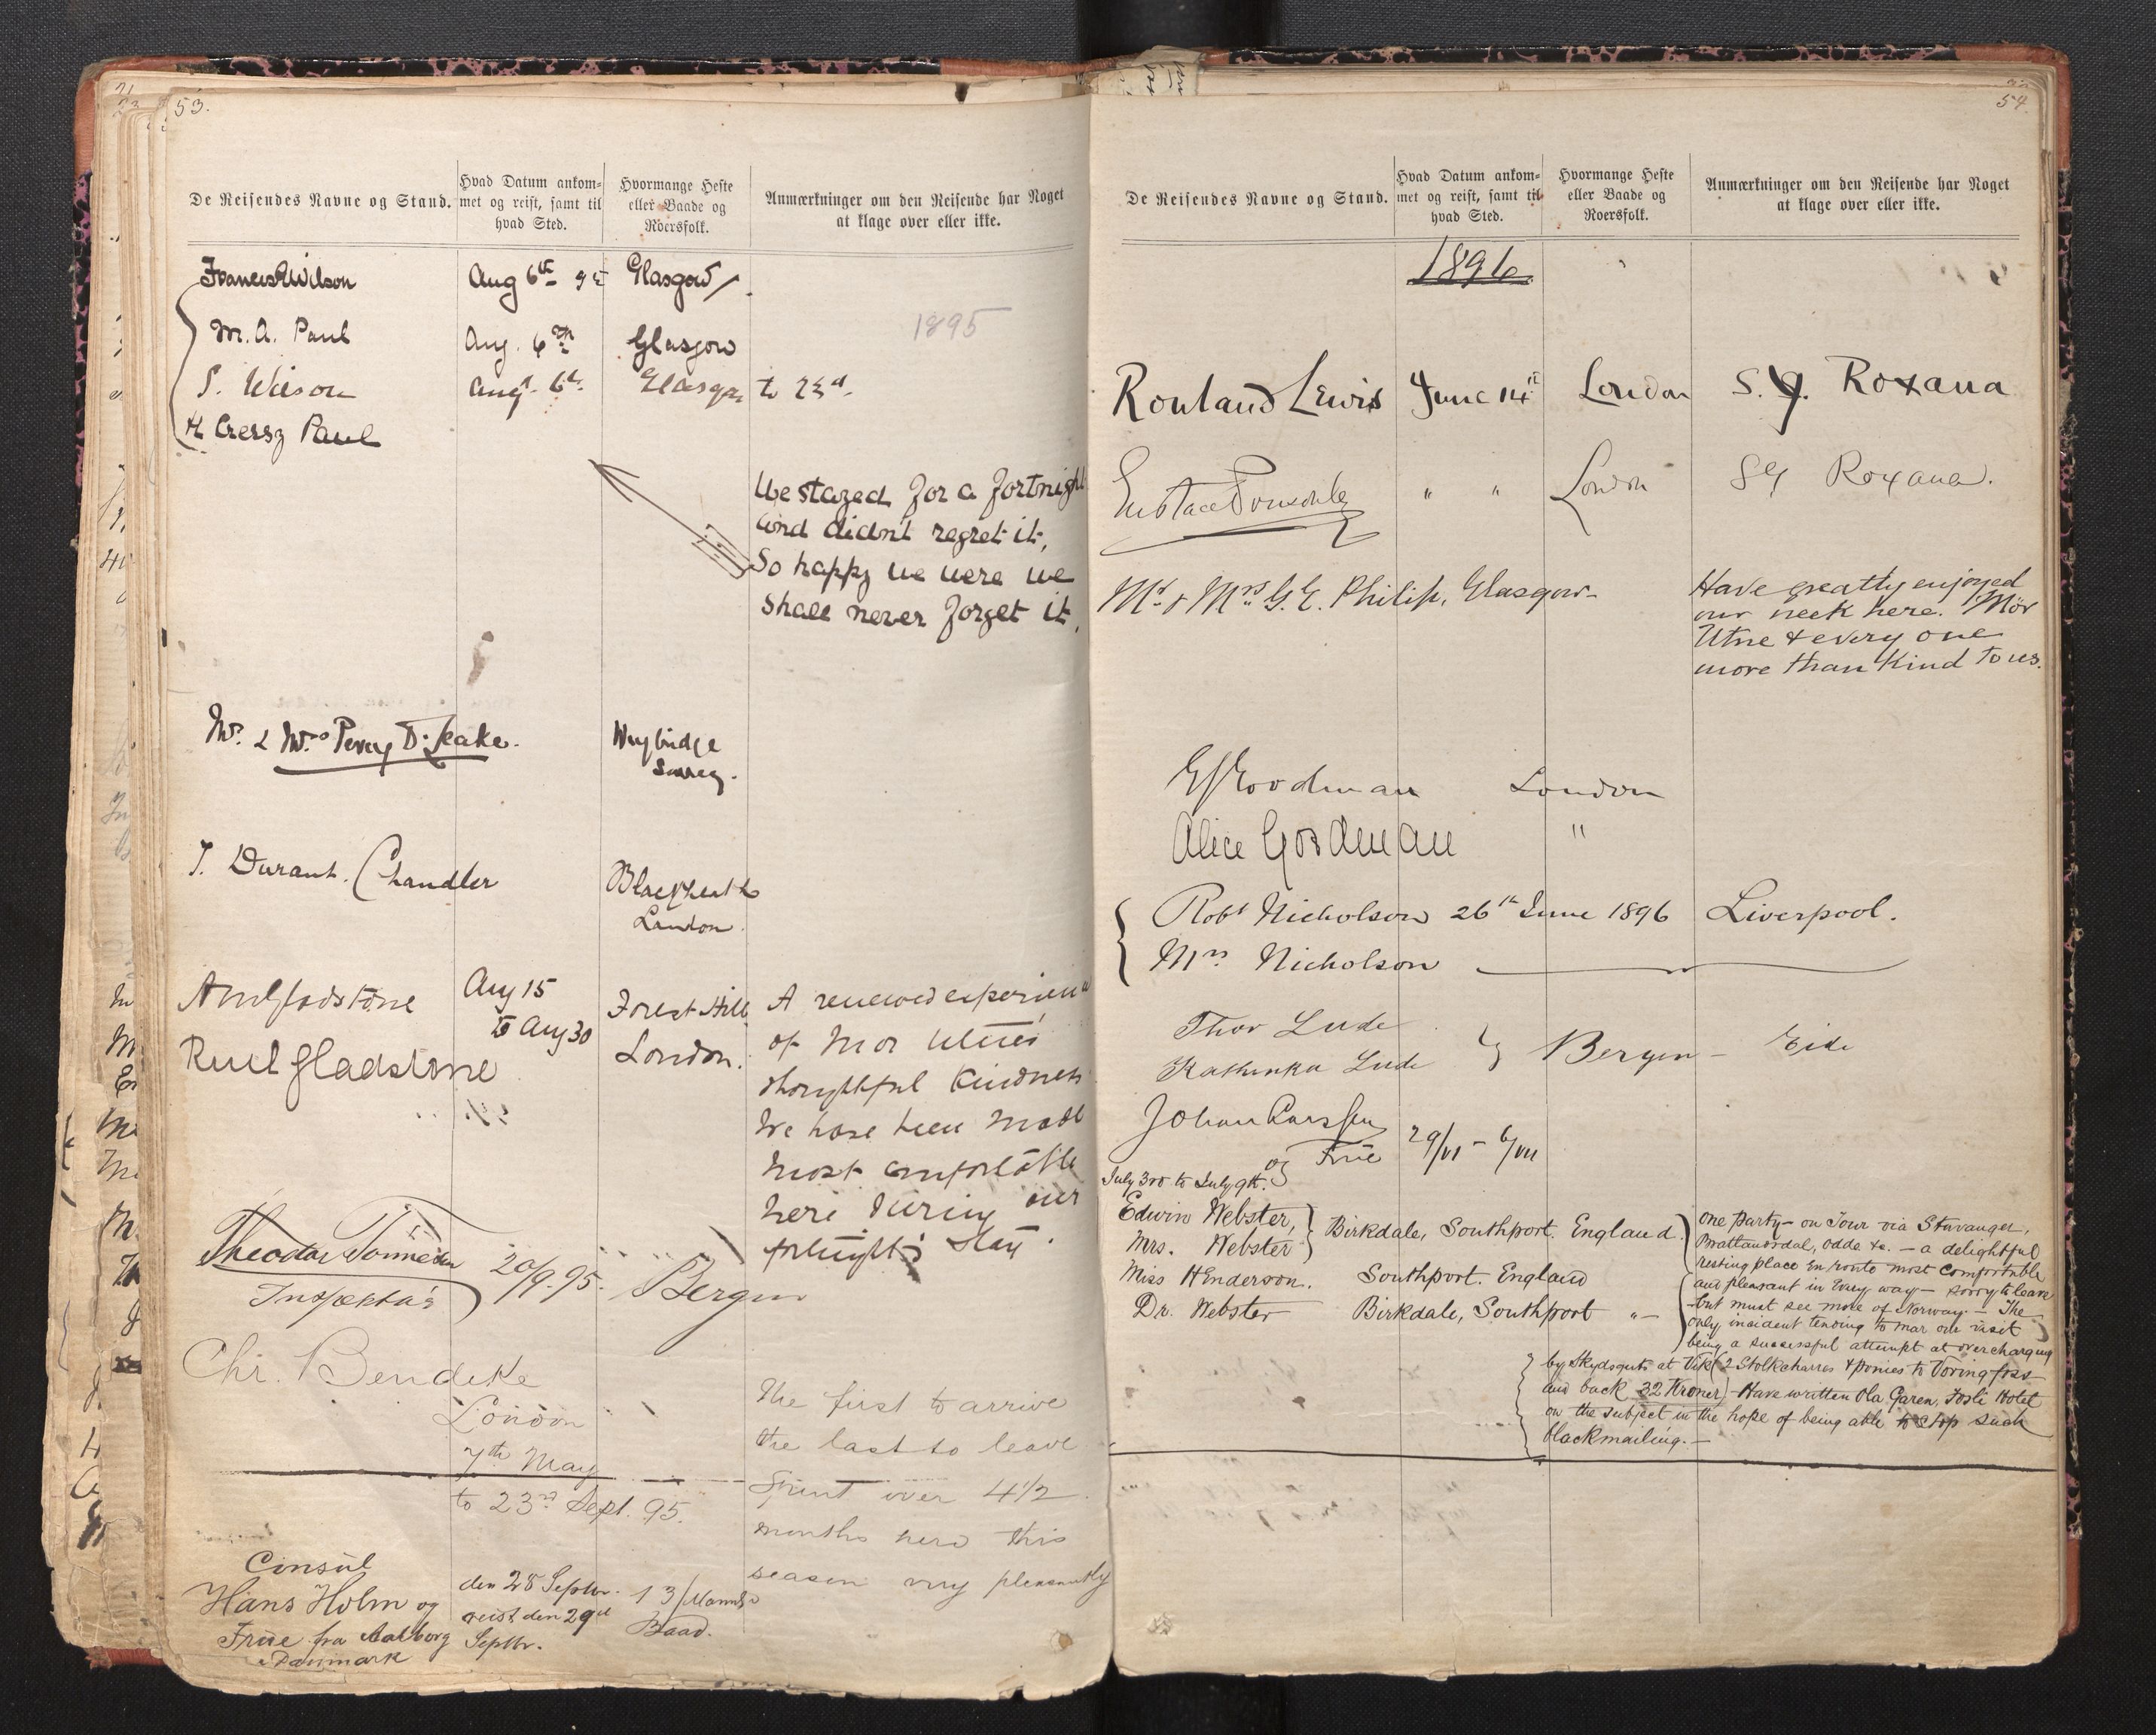 53.
De Reisendes Navne og Stand.
Hvad Datum ankom-
met og reist, samt til
hvad Sted.
Hvormange Heste
eller Baade og
Roersfolk.
Anmærkninger om den Reisende har Noget
at klage over eller ikke.
Wilson Aug 6th 95 Glasgow
M. A. Paul Aug. 6th Glasgow
1895
Wilson Augt. 6th Glasgow to 23d.
H Cressy Paul
We stayed for a fortnight
and didn't regret it,
So happy we were we
Shall never forget it,
Mr. & Mrs Percy D. Leake. Weybridge
Surrey.
T. Durant. Chandler Blackheath
London.
Gladstone Aug 15
to Aug 30
Forest Hill
London.
Gladstone
A renewed experience
of Mor Utne's
thoughtful kindness
We have been made
most comfortable
here during our
fortnight's stay.
Theodor 20/9.95. Bergen
Chr. Bendeke
London
7th May
to 23rd Sept. 95.
The first to arrive
the last to leave
Spent over 4 1/2
months here this
season very pleasantly
Consul
Hans Holm og
Frue fra Aalborg
Danmark
den 28 Septbr.
reist den 29d
Septbr.
1 3/Mands
Baad.
54.
De Reisendes Navne og Stand.
Hvad Datum ankom-
met og reist, samt til
hvad Sted.
Hvormange Heste
eller Baade og
Roersfolk.
Anmærkninger om den Reisende har Noget
at klage over eller ikke.
1896
Rowland Lewis June 14th London S.Y. Roxana
Eustace Ponsonby " " London SY Roxana.
Mr. & Mrs. G. E. Philip, Glasgow-
Have greatly enjoyed
our week here. "Mor
Utne & every one
more than kind to us.
Goodman London
Alice Goodman "
Robt Nicholson 26th June 1896 Liverpool.
Mrs. Nicholson
Thor Lude
Kathinka Lude
Bergen - Eide
Johan Larssen
og Frue 29/VI - 6/VII
July 3rd to July 9th.
Edwin Webster,
Mrs. Webster
Birkdale, Southport. England.
Miss Henderson. Southport. England
Dr. Webster Birkdale, Southport " -
One party - on Tour via Stavanger,
Brattlandsdal, Odde &c. - a delightful
resting place en route most comfortable
and pleasant in every way - sorry to leave
but must see more of Norway. - The
only incident tending to mar our visit
being a successful attempt at overcharging
by Skydsguts at Vik (2 Stolkcharres & ponies to Voringfoss
and back 32 Kroner) - Have written Ola Garen, Fosli Hotel
on the subject in the hope of being able to stop such
blackmailing. -